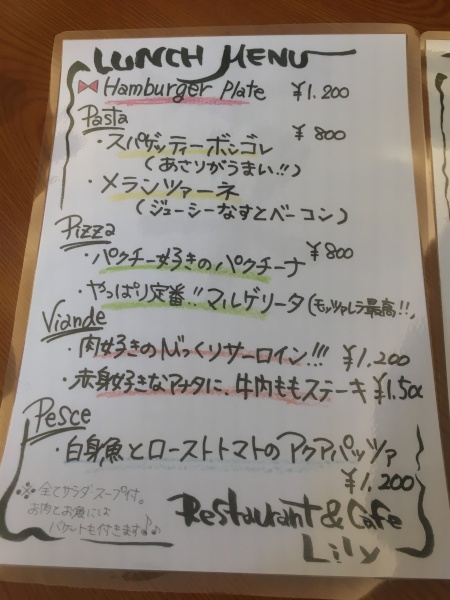 LUNCH MENU
Hamburger Plate ¥1.200
Pasta
・スパゲッティーボンゴレ ¥800
(あさりがうまい!!)
・メランツァーネ
(ジューシーなすとベーコン)
Pizza ¥800
・パクチー好きのパクチーナ
・やっぱり定番!!マルゲリータ(モッツァレラ最高!!
Viande
・肉好きのびっくりサーロイン!!! ¥1,200
・赤身好きなアナタに、牛内ももステーキ ¥1.500
Pesce
・白身魚とローストトマトのアクアパッツァ
¥1.200
※全てサラダ・スープ付。
お肉とお魚には
バケットも付きます♪♪
Restaurant & Cafe
Lily